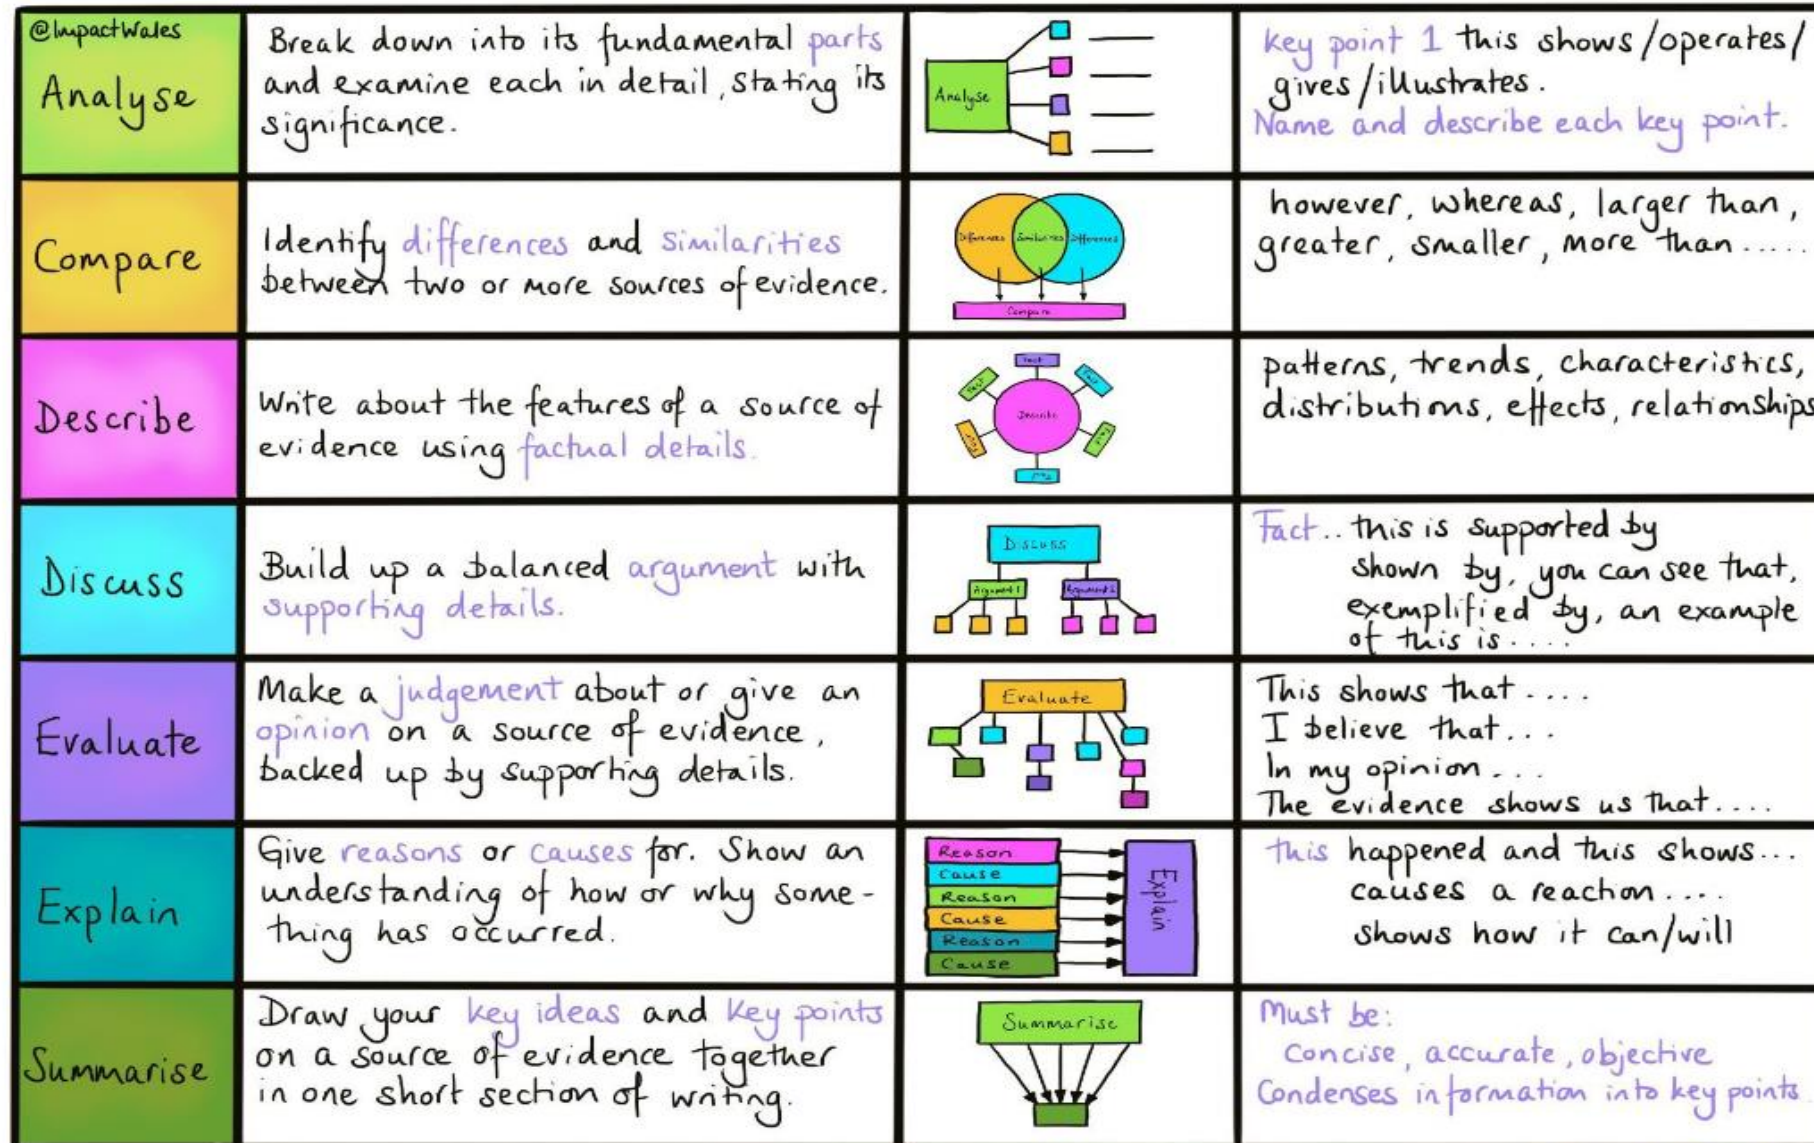 @ImpactWales
Analyse
Break down into its fundamental parts
and examine each in detail, stating its
significance.
Analyse
key point 1 this shows/operates/
gives/illustrates.
Name and describe each key point.
Compare
Identify differences and similarities
between two or more sources of evidence.
Differences Similarities Differences
Compare
however, whereas, larger than,
greater, smaller, more than .....
Describe
Write about the features of a source of
evidence using factual details.
Fact
Fact
Fact
Describe
Fact
Fact
patterns, trends, characteristics,
distributions, effects, relationships
Discuss
Build up a balanced argument with
supporting details.
Discuss
Argument 1
Argument 2
Fact.. this is supported by
shown by, you can see that,
exemplified by, an example
of this is ....
Evaluate
Make a judgement about or give an
opinion on a source of evidence,
backed up by supporting details.
Evaluate
This shows that ....
I believe that...
In my opinion ...
The evidence shows us that....
Explain
Give reasons or causes for. Show an
understanding of how or why some-
thing has occurred.
Reason
Cause
Reason
Cause
Reason
Cause
Explain
this happened and this shows...
causes a reaction ....
shows how it can/will
Summarise
Draw your key ideas and key points
on a source of evidence together
in one short section of writing.
Summarise
Must be:
concise, accurate, objective
Condenses information into key points